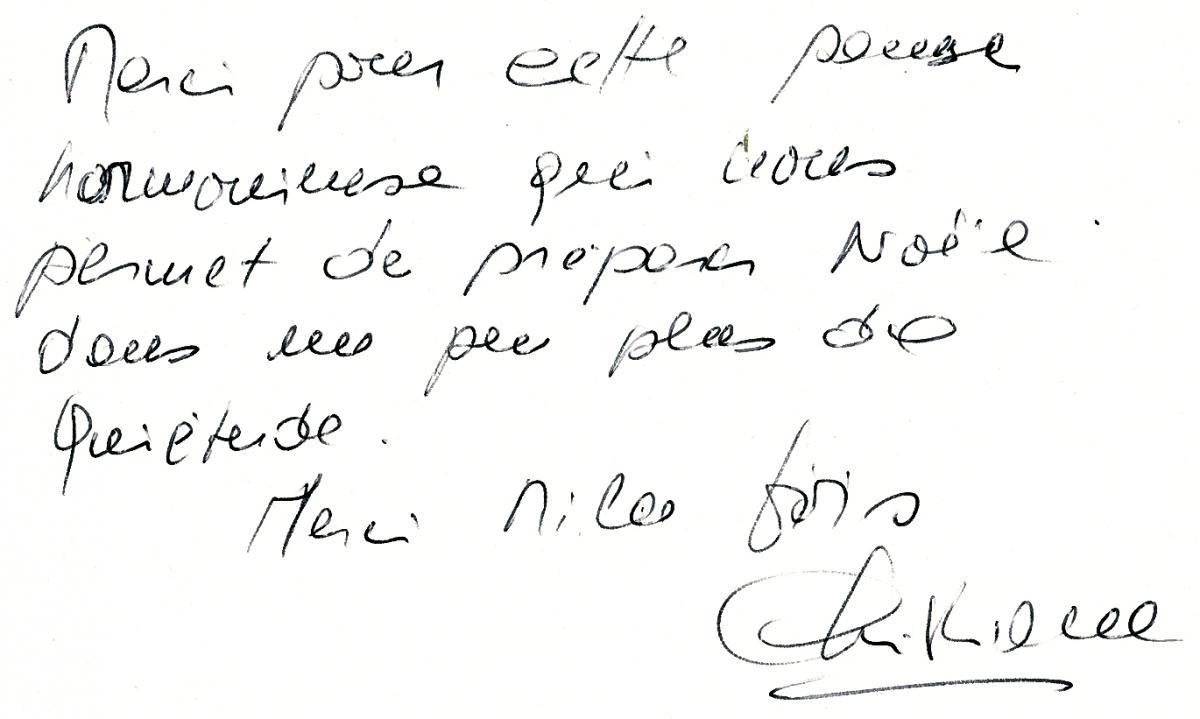 Merci pour cette pause
harmonieuse qui nous
permet de préparer Noël
dans un peu plus de
quiétude.
Merci Mille fois